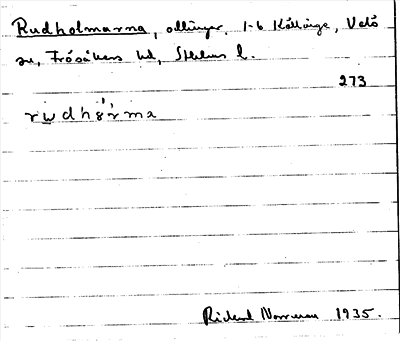 Rudholmarna, odlingar, 1-6 Källänge, Valö
sn, Frösåkers hd, Sthlms l.
273
rwdhɞ̀rma
Rickard Norrman 1935.